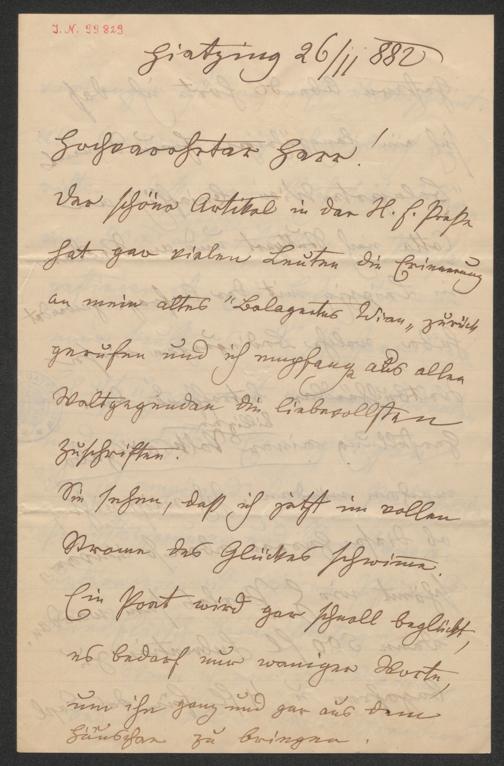 J. N. 99829
Hietzing 26/11 882
Hochverehrter Herr!
Der schöne Artikel in der N. f. Presse
hat gar vielen Leuten die Erinnerung
an mein altes "Belagertes Wien" zurück
gerufen und ich empfange aus allen
Weltgegenden die liebevollsten
Zuschriften.
Sie sehen, daß ich jetzt im vollen
Strome des Glückes schwimme.
Ein Poet wird gar schnell beglückt,
es bedarf nur weniger Worte,
um ihn ganz und gar aus dem
Häuschen zu bringen.